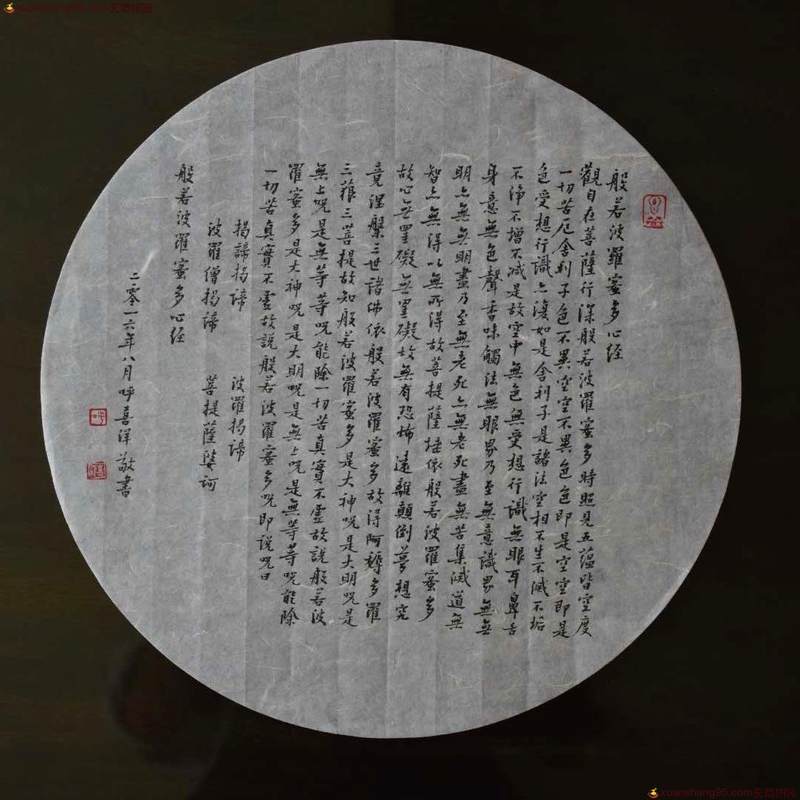 般若波羅蜜多心经
觀自在菩薩行深般若波羅蜜多時照見五蘊皆空度
一切苦厄舍利子色不異空空不異色色即是空空即是
色受想行識亦復如是舍利子是諸法空相不生不滅不垢
不淨不增不减是故空中無色無受想行識無眼耳鼻舌
身意無色聲香味觸法無眼界乃至無意識界無無
明亦無無明盡乃至無老死亦無老死盡無苦集滅道無
智亦無得以無所得故菩提薩埵依般若波羅蜜多
故心無罣礙無罣礙故無有恐怖遠離顛倒夢想究
竟涅槃三世諸佛依般若波羅蜜多故得阿耨多羅
三藐三菩提故知般若波羅蜜多是大神呪是大明呪是
無上呪是無等等呪能除一切苦真實不虛故說般若波
羅蜜多是大神呪是大明呪是無上呪是無等等呪能除
一切苦真實不虛故說般若波羅蜜多呪即説呪曰
揭諦揭諦 波羅揭諦
波羅僧揭諦 菩提薩婆訶
般若波羅蜜多心经
二零一六年八月呼喜洋敬書